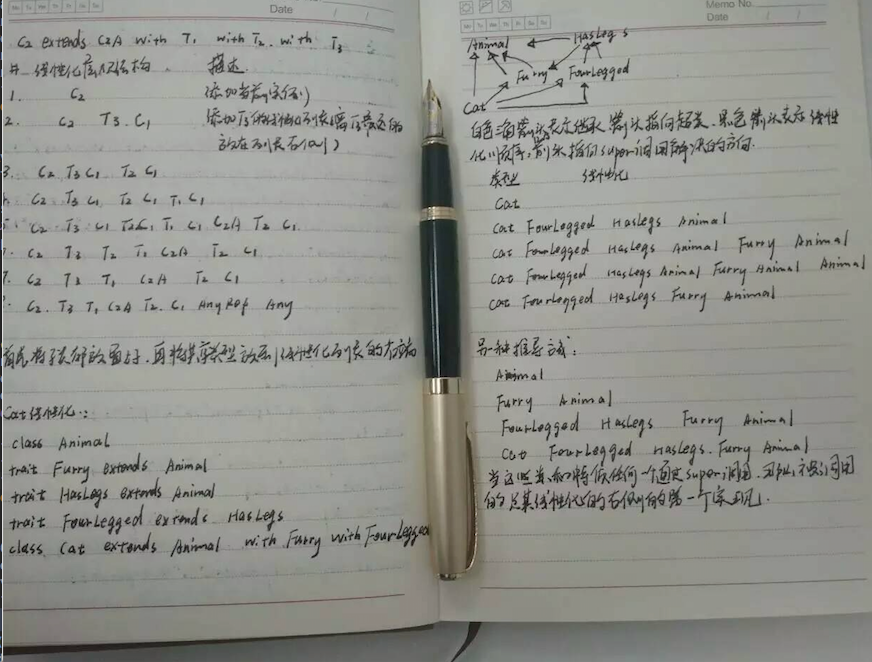 Date
C2 extends C2A with T1 with T2 with T3
# 线性化层次结构 描述
1. C2 添加当前实例
2. C2 T3 C1
3. C2 T3 C1 T2 C1
C2 T3 C1 T2 C1 T1 C1
C2 T3 C1 T2 C1 T1 C1 C2A T2 C1
C2 T3 T2 T1 C2A T2 C1
C2 T3 T1 C2A T2 C1
C2 T3 T1 C2A T2 C1 AnyRef Any
Cat线性化:
class Animal
trait Furry extends Animal
trait HasLegs extends Animal
trait FourLegged extends HasLegs
class Cat extends Animal with Furry with FourLegged
Memo No.
Date
Animal HasLegs
Furry FourLegged
Cat
白色 箭头表示继承 箭头指向超类 黑色箭头表示线性
化顺序, 箭头指向super调用解决的方向.
类型 线性化
Cat
Cat FourLegged HasLegs Animal
Cat FourLegged HasLegs Animal Furry Animal
Cat FourLegged HasLegs Animal Furry Animal Animal
Cat FourLegged HasLegs Furry Animal
另一种推导方式:
Animal
Furry Animal
FourLegged HasLegs Furry Animal
Cat FourLegged HasLegs Furry Animal
当这些类和特质任何一个通过super调用 调用
的是其线性化的右侧的第一个实现.